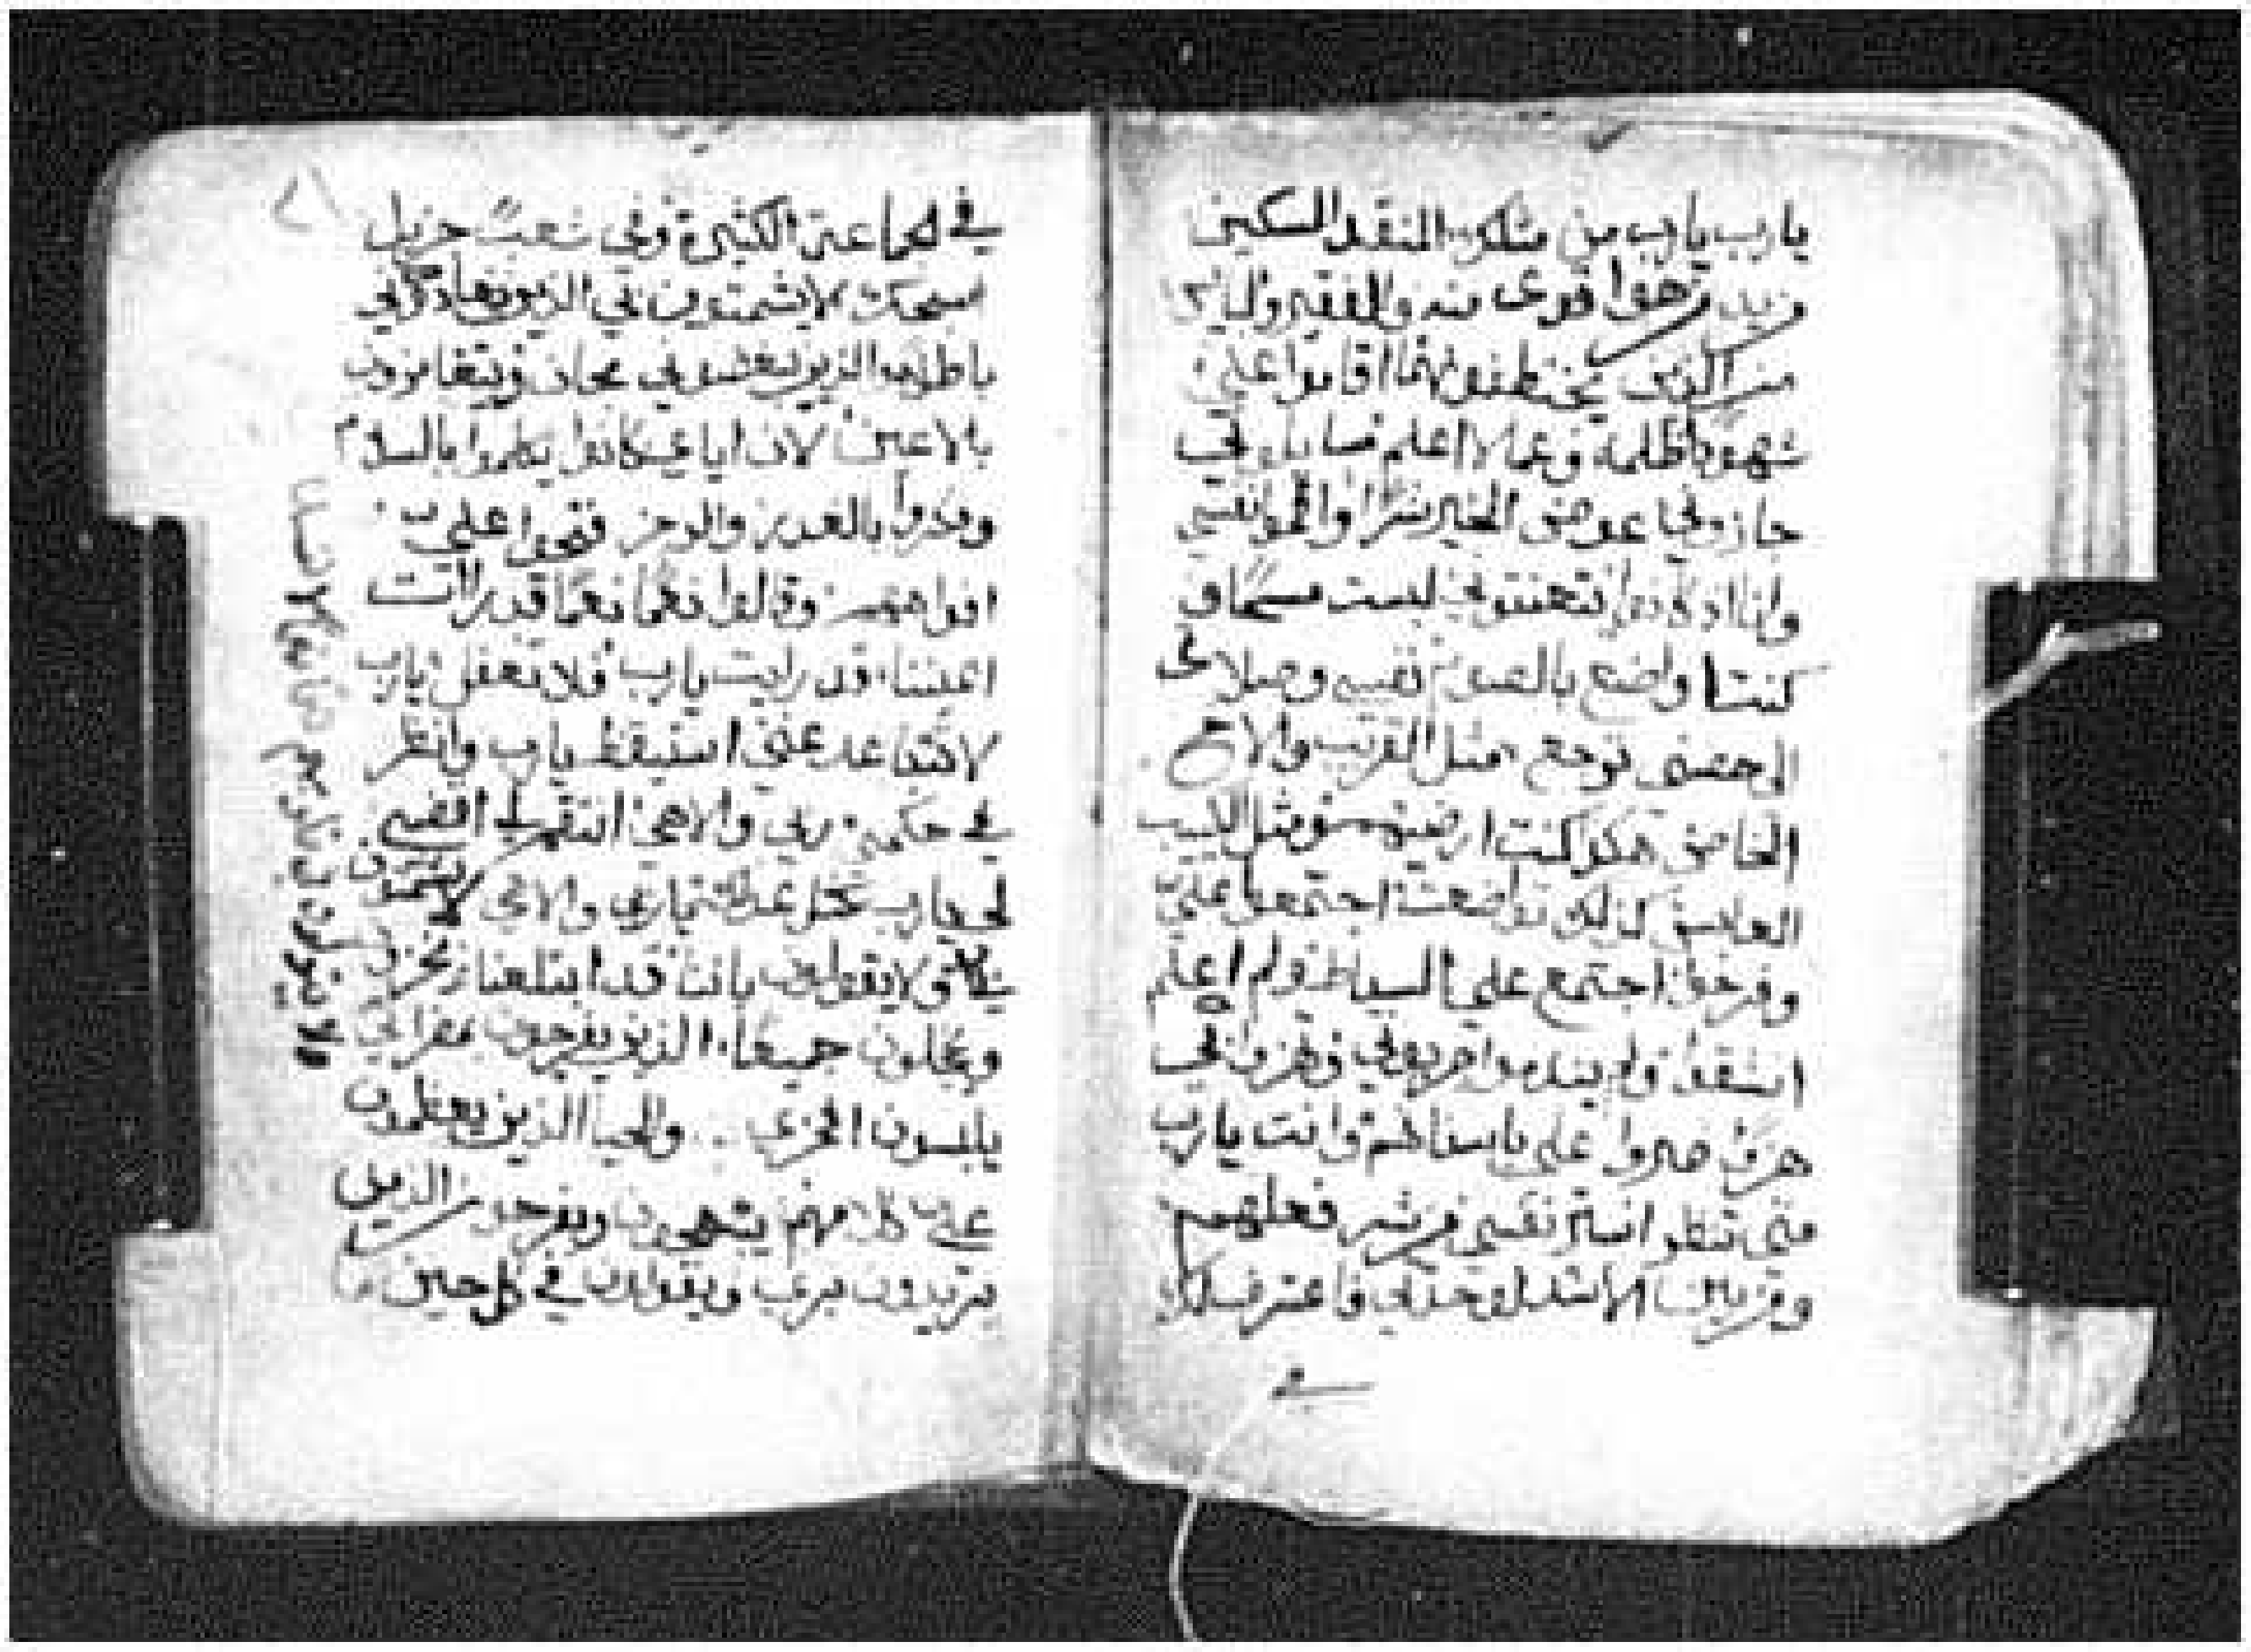 يارب يارب من مثلك المنقد المسكين
من يد من هوا قوى منه والفقير والبائس
من الذين يختطفونهما اقاموا علي
شهود ظلمه وعما لا اعلم سايلوني
جازوني عوض الخير شرا واعقموا نفسي
وانا اذ كانوا يتعنتوني لبست مسحا و
كنت اواضع بالصوم نفسي وصلاتي
الى حضني ترجع مثل القريب والاخ
الخاص هكذا كنت ارضيهم ومثل الكييب
العابس كذلك تواضعت اجتمعوا علي
وفرحوا اجتمع علي السياط ولم اعلم
انشقوا ولم يندموا جربوني وهزوا بي
هزوا صروا علي باسنانهم وانت يارب
متى تنظر استر نفسي من شر فعلهم
ومن بين الاشبال وحدتي واعترف لك
في
في الجماعة الكثيرة وفى شعب جزيل
اسبحك لا يشمتون بي الذين يعادونني
باطلا الذين يبغضوني مجانا ويتغامزون
بالاعين لان اياي كانوا يكلموا بالسلام
وفكروا بالغدر والرجز فتحوا علي
افواههم وقالوا نعما نعما قد رات
اعيننا قد رايت يارب فلا تغفل يارب
لا تتباعد عني استيقظ يارب وانظر
في حكمي ربي والاهي انتقم لي اقضي
لي يارب مثل عدلك يا ربي والاهي لا يشمتون
لا يقولون باننا قد ابتلعناه يخزون
ويخجلون جميعا الذين يفرحون بضرائي
يلبسون الخزي والحيا الذين يعظمون
علي كلامهم يبتهجون ويفرحون الذين
يريدون بري ويقولون في كل حين